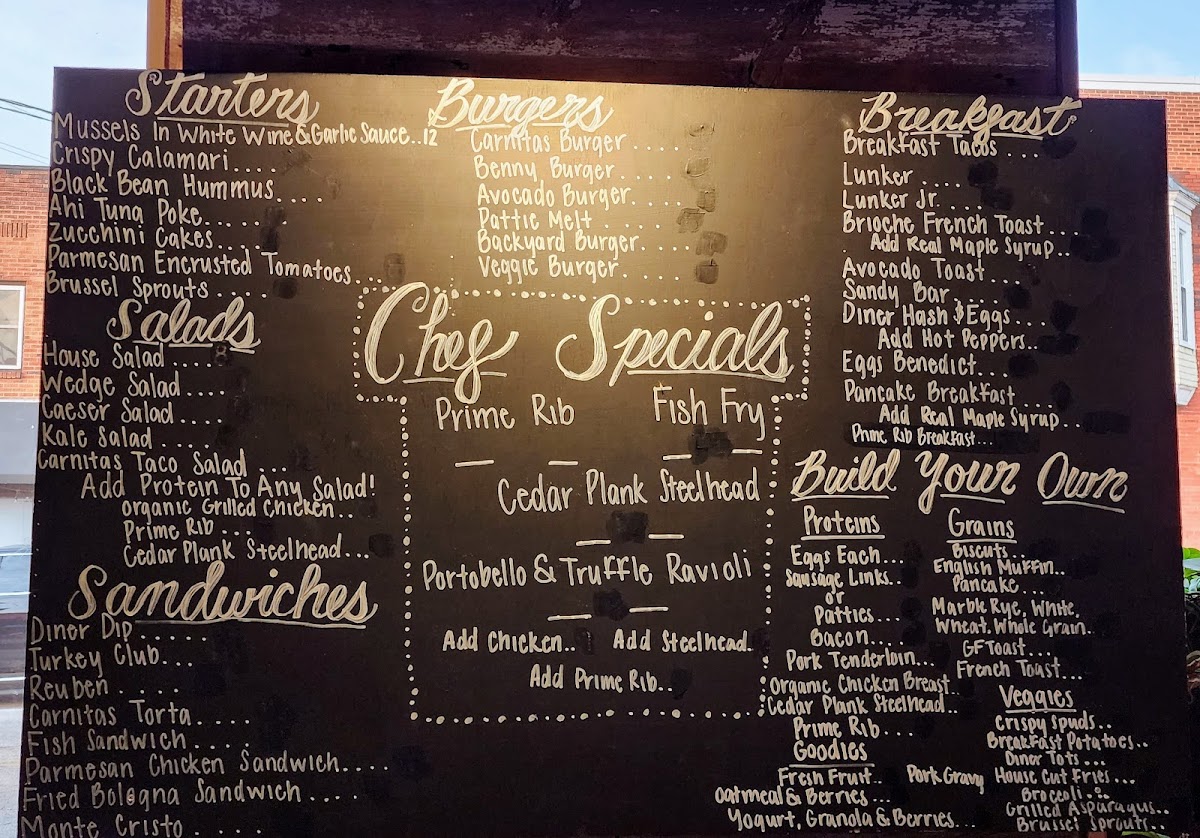 Starters
Mussels In White Wine & Garlic Sauce..12
Crispy Calamari....
Black Bean Hummus....
Ahi Tuna Poke.....
Zucchini Cakes....
Parmesan Encrusted Tomatoes...
Brussel Sprouts....
Salads
House Salad....8
Wedge Salad....
Caeser Salad....
Kale Salad.....
Carnitas Taco Salad...
Add Protein To Any Salad!
Organic Grilled Chicken..
Prime Rib...
Cedar Plank Steelhead...
Sandwiches
Diner Dip......
Turkey Club...
Reuben......
Carnitas Torta....
Fish Sandwich....
Parmesan Chicken Sandwich....
Fried Bologna Sandwich....
Monte Cristo.....
Burgers
Carnitas Burger.....
Benny Burger.....
Avocado Burger.....
Pattie Melt.....
Backyard Burger....
Veggie Burger.....
Chef Specials
Prime Rib
Fish Fry
Cedar Plank Steelhead
Portobello & Truffle Ravioli
Add Chicken.. Add Steelhead.
Add Prime Rib..
Breakfast
Breakfast Tacos...
Lunker....
Lunker Jr....
Brioche French Toast...
Add Real Maple Syrup..
Avocado Toast....
Sandy Bar....
Diner Hash $ Eggs...
Add Hot Peppers..
Eggs Benedict...
Pancake Breakfast....
Add Real Maple Syrup...
Prime Rib Breakfast...
Build Your Own
Proteins
Eggs Each...
Sausage Links..
or
Patties...
Bacon...
Pork Tenderloin...
Organic Chicken Breast..
Cedar Plank Steelhead..
Prime Rib...
Goodies
Fresh Fruit..
Pork Gravy
Oatmeal & Berries...
Yogurt, Granola & Berries...
Grains
Biscuits..
English Muffin..
Pancake...
Marble Rye, White,
Wheat, Whole Grain..
GF Toast...
French Toast...
Veggies
Crispy Spuds..
Breakfast Potatoes..
Diner Tots...
House Cut Fries...
Broccoli...
Grilled Asparagus..
Brussel Sprouts...